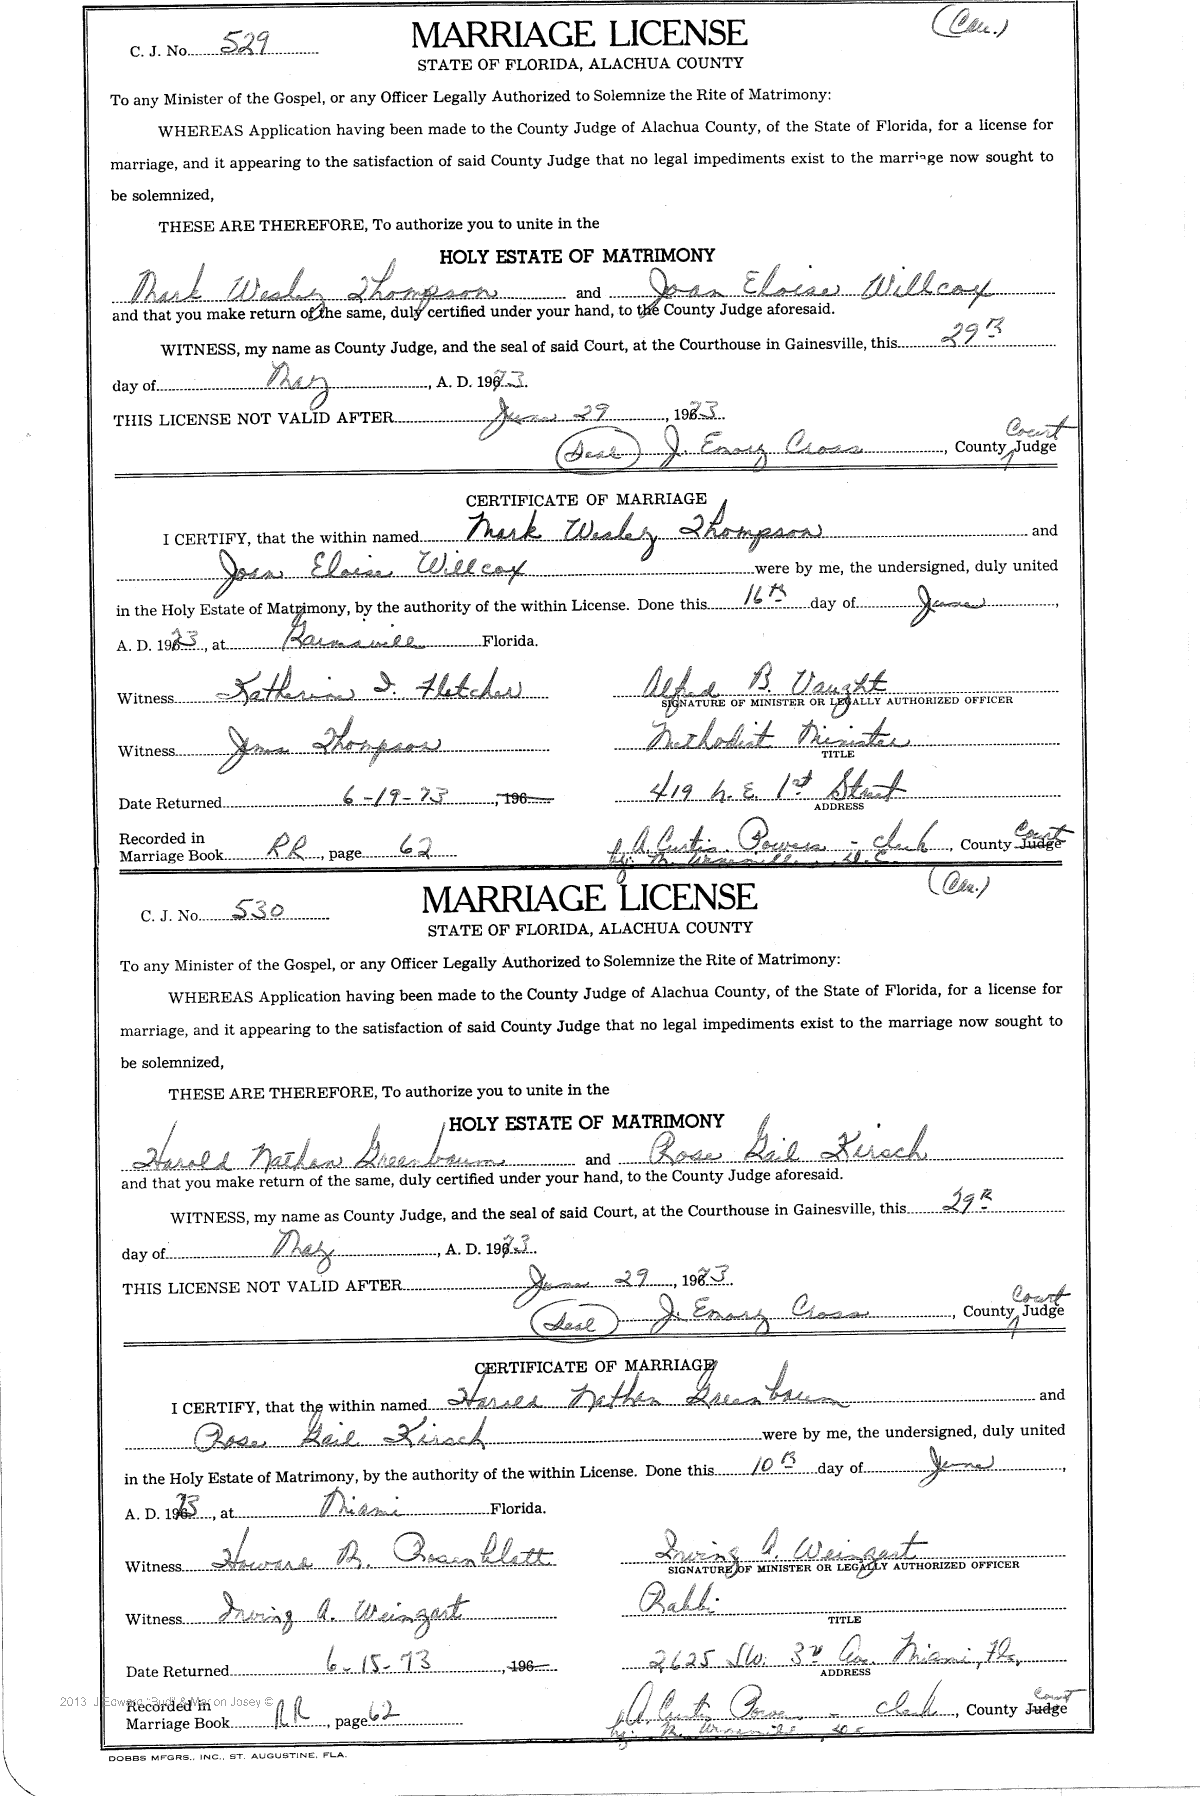 (Cau.)
C. J. No. 529
MARRIAGE LICENSE
STATE OF FLORIDA, ALACHUA COUNTY
To any Minister of the Gospel, or any Officer Legally Authorized to Solemnize the Rite of Matrimony:
WHEREAS Application having been made to the County Judge of Alachua County, of the State of Florida, for a license for
marriage, and it appearing to the satisfaction of said County Judge that no legal impediments exist to the marriage now sought to
be solemnized,
THESE ARE THEREFORE, To authorize you to unite in the
HOLY ESTATE OF MATRIMONY
Mark Wesley Thompson and Joan Eloise Willcox
and that you make return of the same, duly certified under your hand, to the County Judge aforesaid.
WITNESS, my name as County Judge, and the seal of said Court, at the Courthouse in Gainesville, this 29th
day of May, A. D. 1973.
THIS LICENSE NOT VALID AFTER June 29, 1973
(Seal) J. Emory Cross, County Court Judge
CERTIFICATE OF MARRIAGE
I CERTIFY, that the within named Mark Wesley Thompson and
Joan Eloise Willcox were by me, the undersigned, duly united
in the Holy Estate of Matrimony, by the authority of the within License. Done this 16th day of June,
A. D. 1973, at Gainesville Florida.
Witness Katherine I. Fletcher Alfred B. Vaught
SIGNATURE OF MINISTER OR LEGALLY AUTHORIZED OFFICER
Witness Jema Thompson Methodist Minister
TITLE
Date Returned 6-19-73, 196 419 N. E. 1st Street
ADDRESS
Recorded in
Marriage Book RR, page 62 A. Curtis Powers - Clerk, County Judge Court
by: M. D.C.
(Cau.)
C. J. No. 530
MARRIAGE LICENSE
STATE OF FLORIDA, ALACHUA COUNTY
To any Minister of the Gospel, or any Officer Legally Authorized to Solemnize the Rite of Matrimony:
WHEREAS Application having been made to the County Judge of Alachua County, of the State of Florida, for a license for
marriage, and it appearing to the satisfaction of said County Judge that no legal impediments exist to the marriage now sought to
be solemnized,
THESE ARE THEREFORE, To authorize you to unite in the
HOLY ESTATE OF MATRIMONY
Harold Nathan Greenbaum and Rose Gail Kirsch
and that you make return of the same, duly certified under your hand, to the County Judge aforesaid.
WITNESS, my name as County Judge, and the seal of said Court, at the Courthouse in Gainesville, this 29th
day of May, A. D. 1973.
THIS LICENSE NOT VALID AFTER June 29, 1973.
(Seal) J. Emory Cross, County Court Judge
CERTIFICATE OF MARRIAGE
I CERTIFY, that the within named Harold Nathan Greenbaum and
Rose Gail Kirsch were by me, the undersigned, duly united
in the Holy Estate of Matrimony, by the authority of the within License. Done this 10th day of June,
A. D. 1973, at Miami Florida.
Witness Howard R. Rosenblatt Irving A. Weingart
SIGNATURE OF MINISTER OR LEGALLY AUTHORIZED OFFICER
Witness Irving A. Weingart Rabbi
TITLE
Date Returned 6-15-73, 196 2625 SW. 3rd Av. Miami, Fla.
ADDRESS
2013 J Edward "Bud" & Marion Josey ©
Recorded in
Marriage Book RR, page 62 A. Curtis Powers - Clerk, County Judge Court
by: M. D.C.
DOBBS MFGRS., INC., ST. AUGUSTINE, FLA.